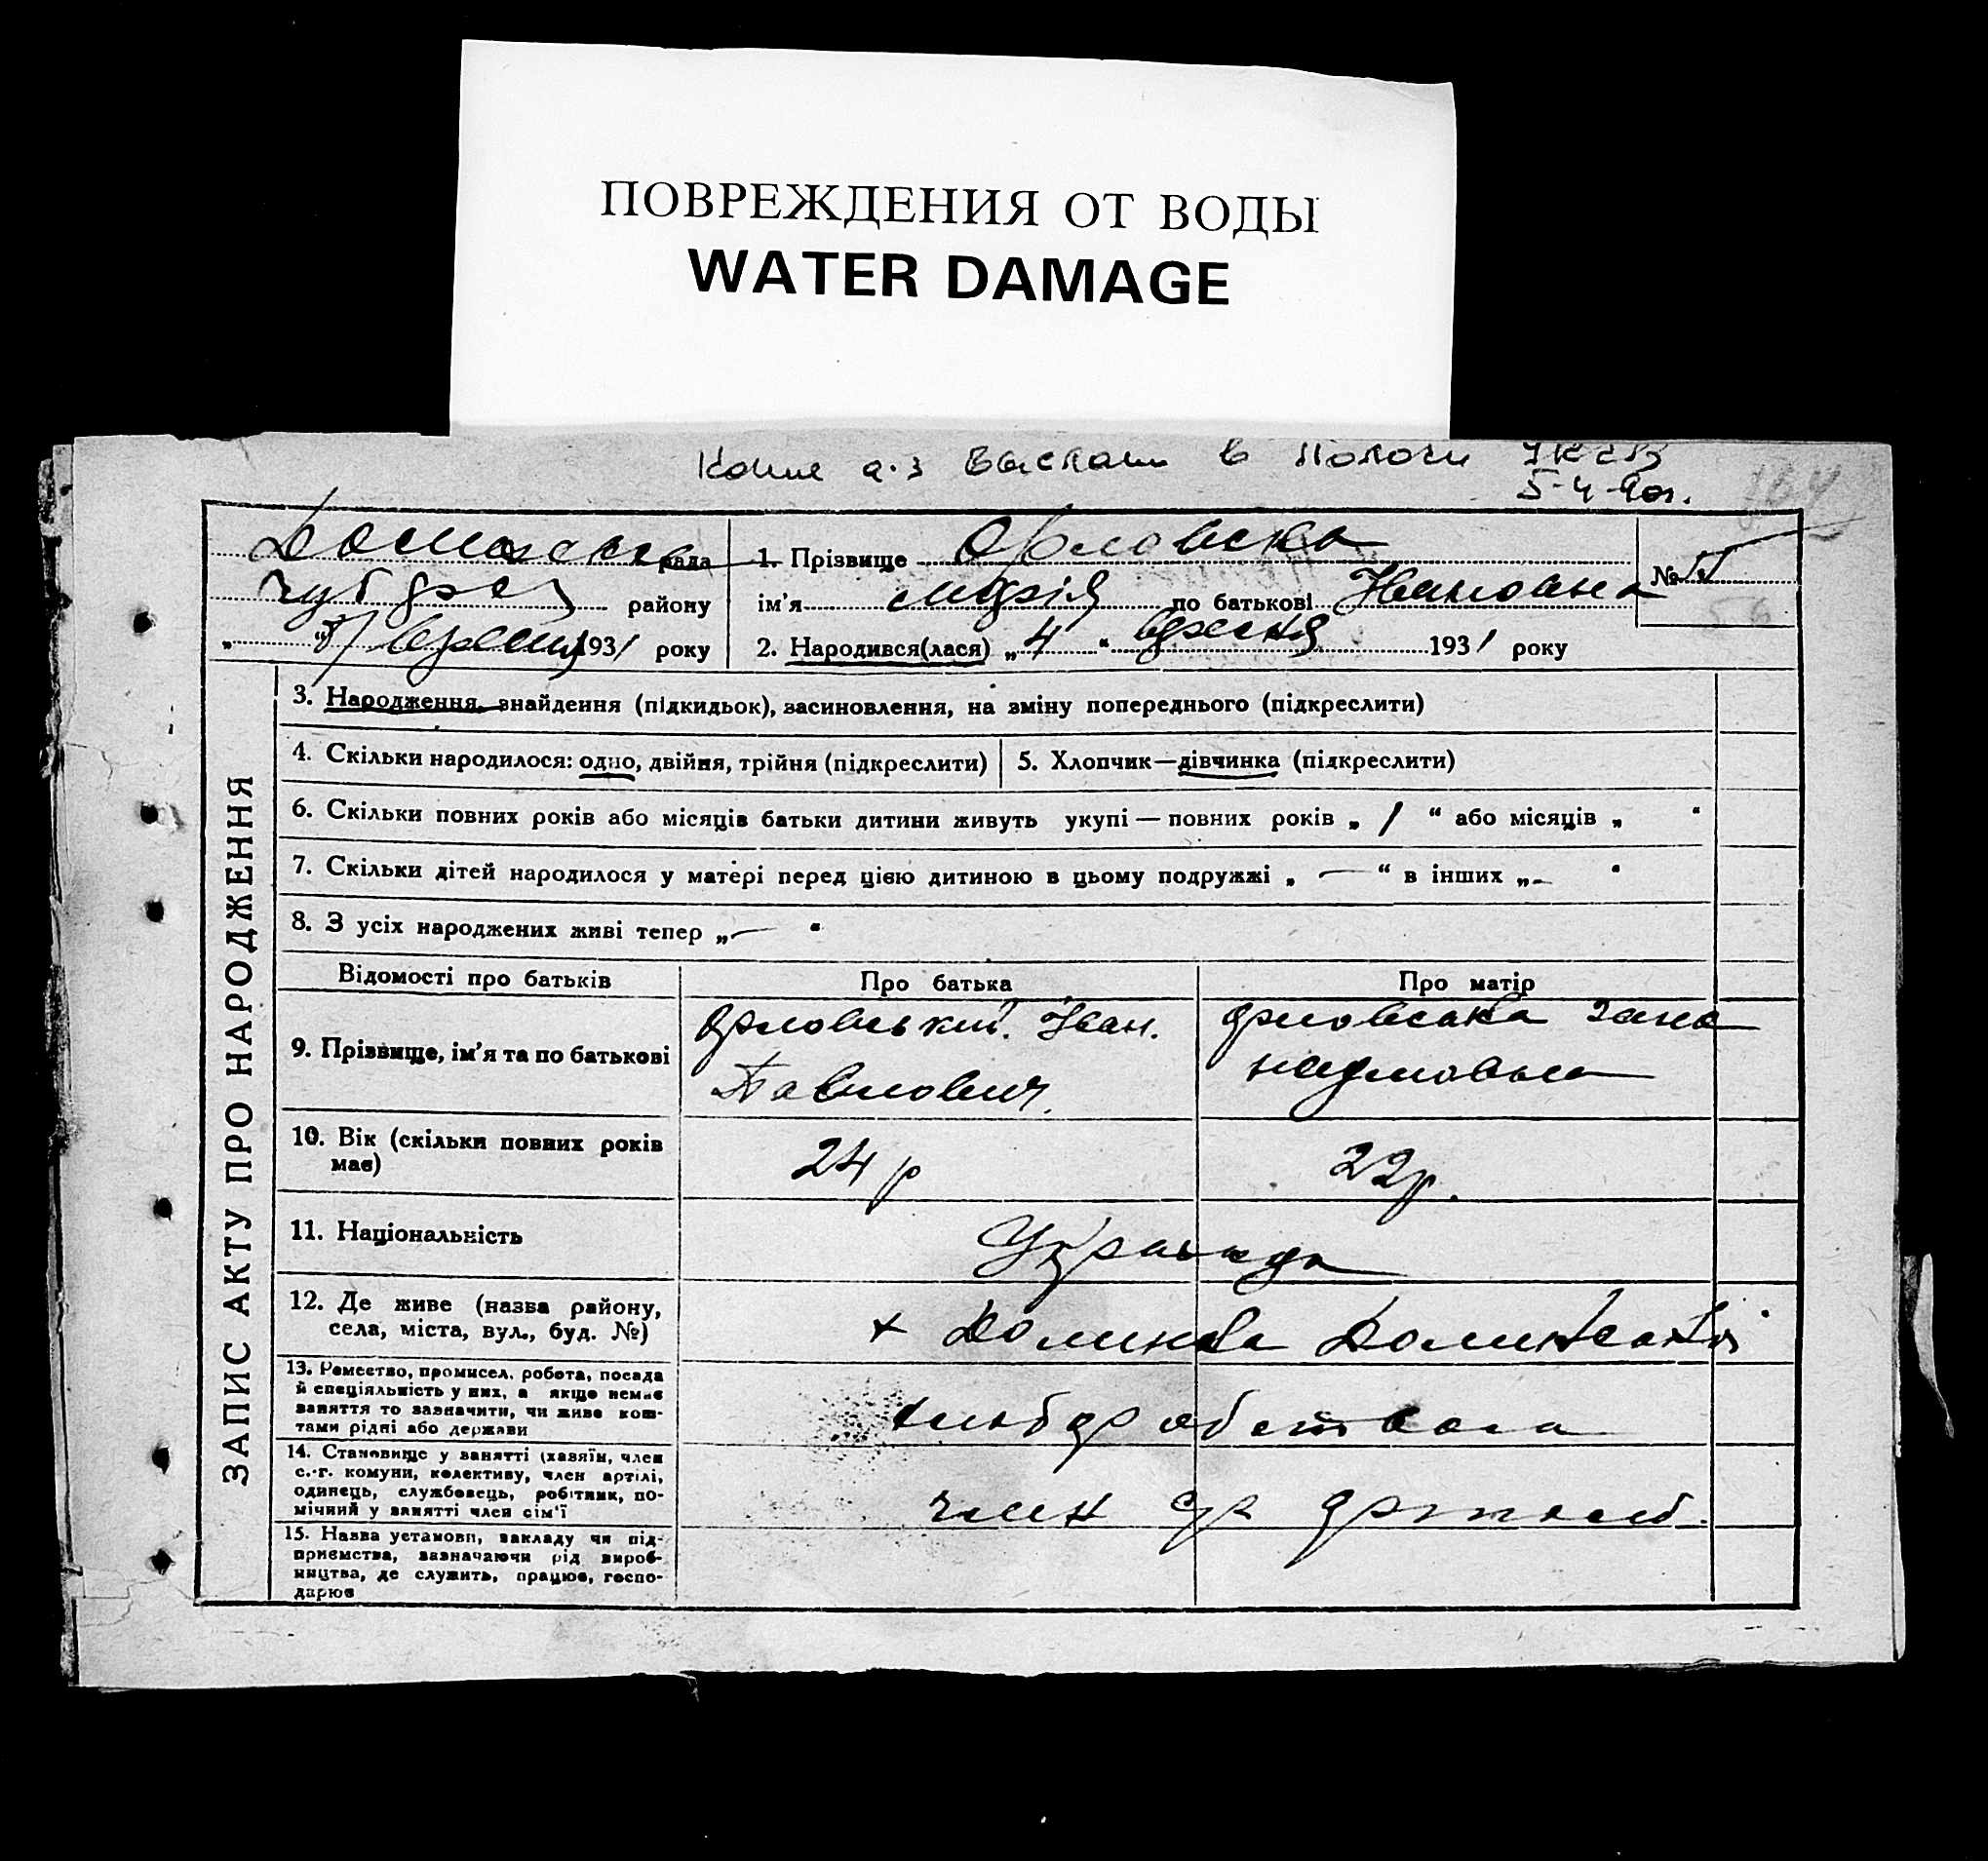 ПОВРЕЖДЕНИЯ ОТ ВОДЫ
WATER DAMAGE
в Пологи
5-4-90г.
рада
району
1931 року
1. Прізвище Орловска
ім'я Марія по батькові Ивановна
№
2. Народився(лася) „4“ вресня 1931 року
ЗАПИС АКТУ ПРО НАРОДЖЕННЯ
3. Народження, знайдення (підкидьок), засиновлення, на зміну попереднього (підкреслити)
4. Скільки народилося: одно, двійня, трійня (підкреслити)
5. Хлопчик—дівчинка (підкреслити)
6. Скільки повних років або місяців батьки дитини живуть укупі — повних років „ 1 “ або місяців „ “
7. Скільки дітей народилося у матері перед цією дитиною в цьому подружжі „ — “ в інших „ – “
8. З усіх народжених живі тепер „ — “
Відомості про батьків
Про батька
Про матір
9. Прізвище, ім'я та по батькові
Орловський Іван.
Павлович.
Орловська
10. Вік (скільки повних років
має)
24 р
22р.
11. Національність
12. Де живе (назва району,
села, міста, вул., буд. №)
х Долинка
13. Ремество, промисел, робота, посада
й спеціяльність у них, а якщо немає
заняття то зазначити, чи живе кош-
тами рідні або держави
хліборобство
14. Становище у занятті (хазяїн, член
с.-г. комуни, колективу, член артілі,
одинець, службовець, робітник, по-
мічний у занятті член сім'ї
член
15. Назва установи, закладу чи під-
приємства, зазначаючи рід вироб-
ництва, де служить, працює, госпо-
дарює